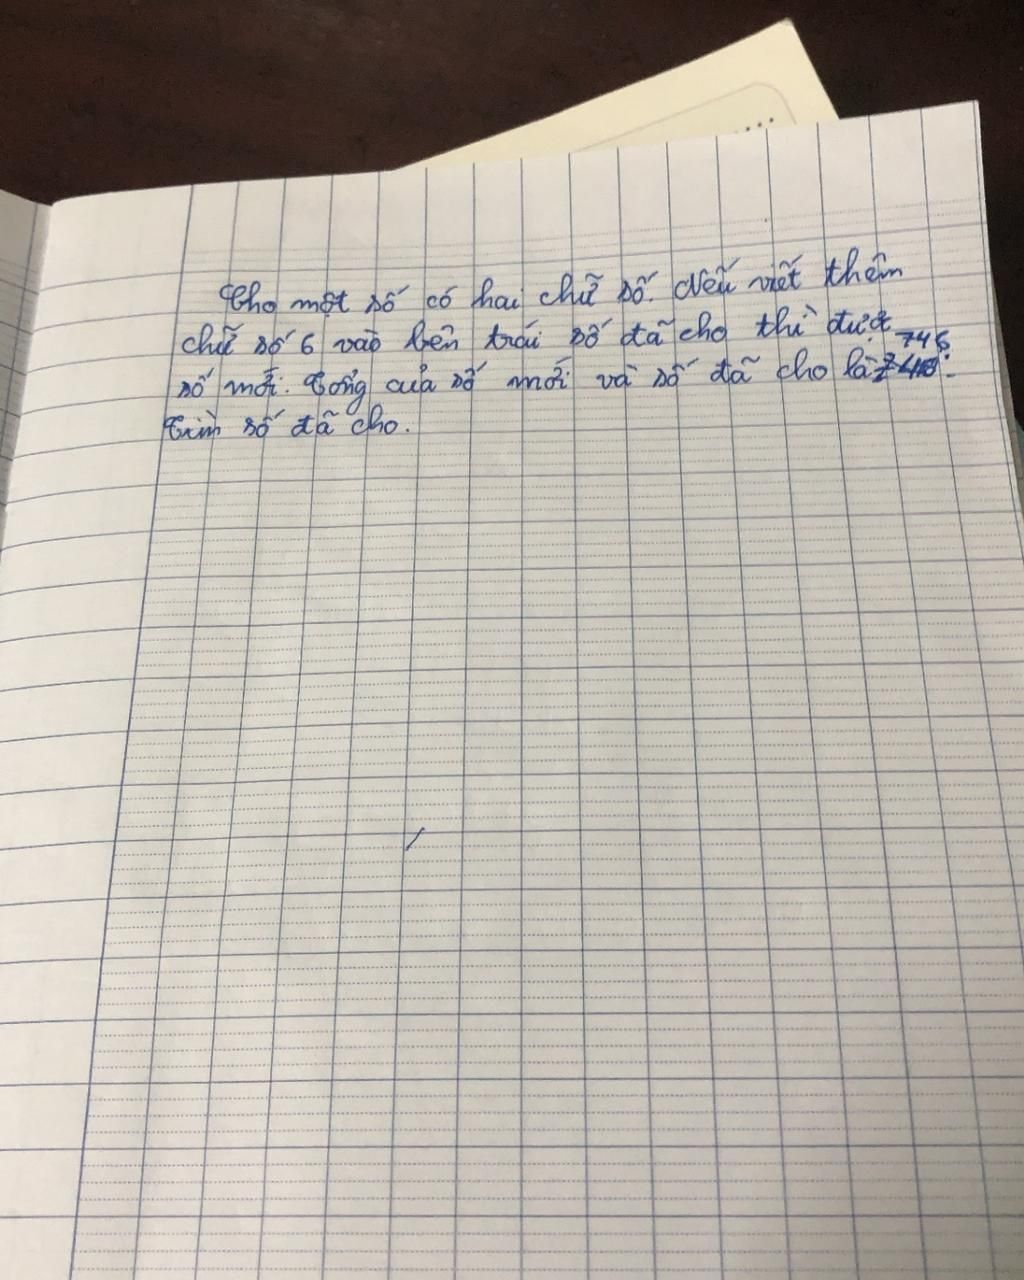 Cho một số có hai chữ số. Nếu viết thêm
chữ số 6 vào bên trái số đã cho thì được
số mới. Tổng của số mới và số đã cho là
Tìm số đã cho.